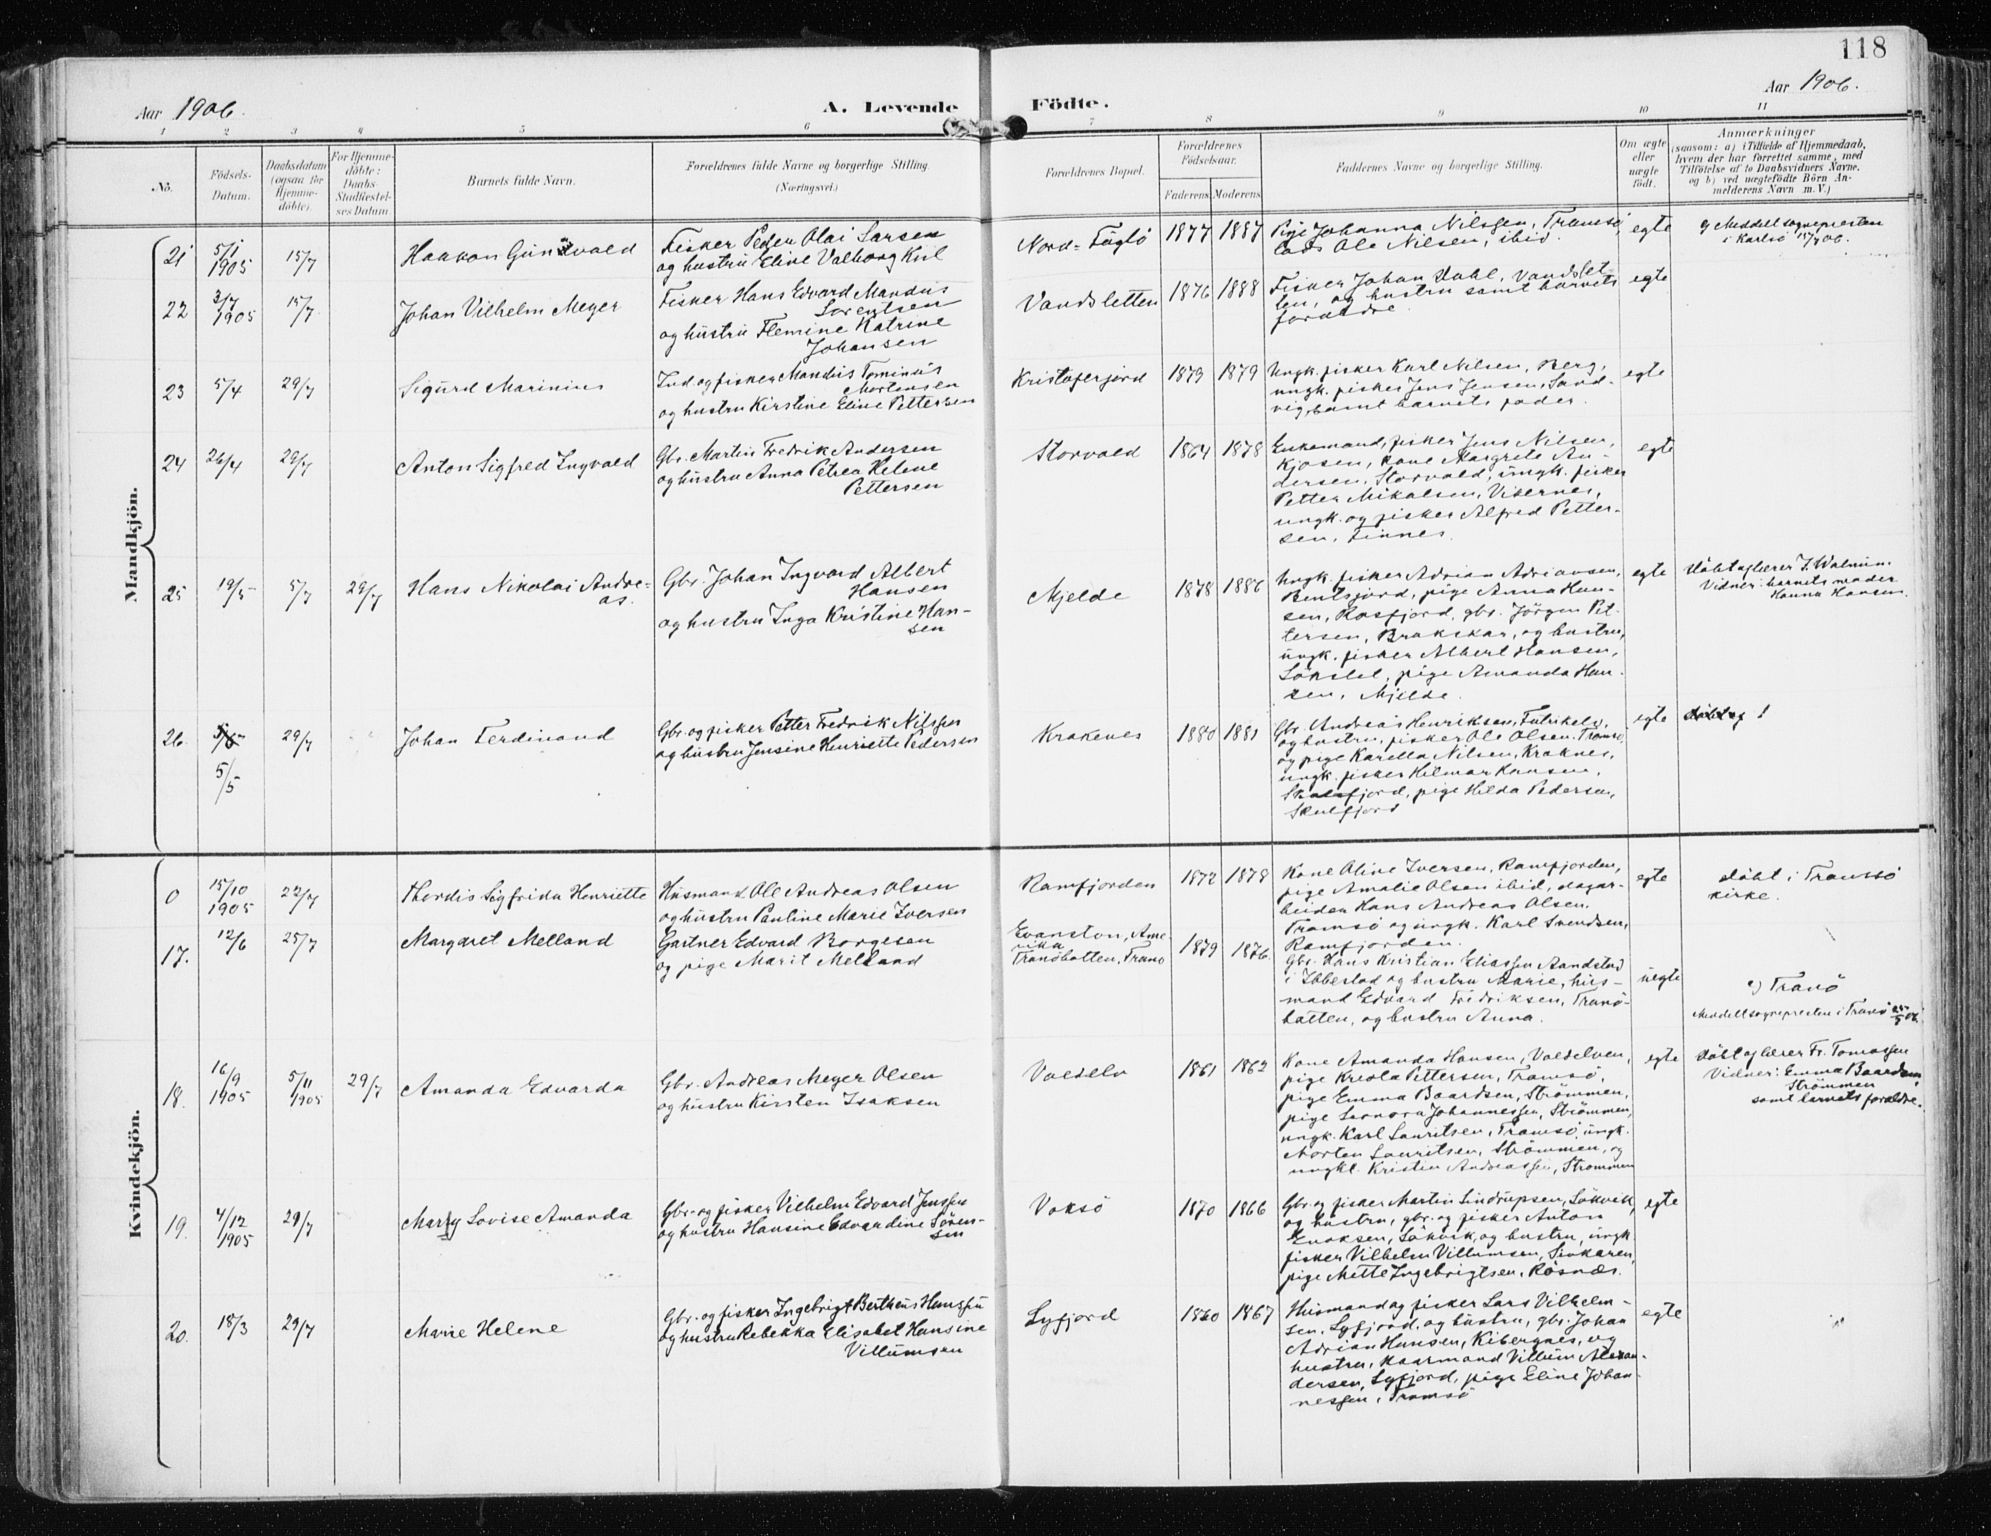 118
Aar 1906.
A. Levende Födte.
Aar 1906.
1 2 3 4 5 6 7 8 9 10 11
No.
Födsels-
Datum.
Daabsdatum
(ogsaa for
Hjemme-
döbte).
For Hjemme-
döbte:
Daabs-
Stadfæstel-
ses Datum.
Barnets fulde Navn.
Forældrenes fulde Navne og borgerlige Stilling.
(Næringsvei.)
Forældrenes Bopæl.
Forældrenes
Födselsaar.
Faderens. Moderens.
Faddernes Navne og borgerlige Stilling.
Om ægte
eller
uægte
født.
Anmærkninger
(saasom: a) i Tilfælde af Hjemmedaab,
hvem der har forrettet samme, med
Tilföielse af to Daabsvidners Navne,
og b) ved uægtefödte Börn An-
melderens Navn m. V.)
Mandkjön.
21 5/1 1905 15/7 Haakon Gunvald
Fisker Peder Olai Larsen
og hustru Eline Valborg Kiil
Nord-Fuglö 1877 1887
Pige Johanna Nilsen, Tromsö,
Ole Nilsen, ibid.
egte
Meddelt sognepresten
i Karlsö 15/7 06.
22 3/7 1905 15/7 Johan Vilhelm Meyer
Fisker Hans Edvard Mandus
Lorentsen
og hustru Flemine Katrine
Johansen
Vandsletten 1876 1888
Fisker Johan Dahl, Vandslet-
ten, og hustru samt barnets
forældre
egte
23 5/4 29/7 Sigurd Marinius
Ind. og fisker Mandus Tominus
Mortensen
og hustru Kirstine Eline Pettersen
Kristoferjord 1879 1879
Ungk. fisker Karl Nilsen, Berg,
ungk. fisker Jens Jensen, Sand-
vig, samt barnets fader.
egte
24 26/4 29/7 Anton Sigfred Ingvald
Gbr. Martin Fredrik Andersen
og hustru Anna Petrea Helene
Pettersen
Storvold 1864 1878
Enkemand, fisker Jens Nilsen,
Kjosen, kone Margrete An-
dersen, Storvold, ungk. fisker
Petter Mikalsen, Visernes,
ungk. og fisker Alfred Petter-
sen, Finnes.
egte
25 19/5 5/7 29/7 Hans Nikolai Andre-
as.
Gbr. Johan Ingvard Albert
Hansen
og hustru Inga Kristine Han-
sen
Mjelde 1878 1886
Ungk. fisker Adrian Adriansen,
Bentsjord, pige Anna Han-
sen, Rosfjord, gbr. Jörgen Pet-
tersen, Brokskar, og hustru,
ungk. fisker Albert Hansen,
pige Amanda Han-
sen, Mjelde.
egte
döbt af lærer J. Walnum.
Vidner: barnets moder
Hanna Hansen.
26. 5/5 29/7 Johan Ferdinand
Gbr. og fisker Petter Fredrik Nilssen
og hustru Jensine Henriette Pedersen
Krakenes 1880 1881
Gbr. Andreas Henriksen, Futrikelv,
og hustru, fisker Ole Olsen, Tromsö,
og pige Karella Nilsen, Kraknes,
ungk. fisker Hilmar Hansen,
Skulsfjord, pige Hilda Pedersen,
Skulfjord
egte
döbt af
Kvindekjön.
0 15/10 1905 22/7 Thordis Sigfrida Henriette
Husmand Ole Andreas Olsen
og hustru Pauline Marie Iversen
Ramfjorden 1872 1878
Kone Oline Iversen, Ramfjorden,
pige Amalie Olsen ibid, dagar-
beider Hans Andreas Olsen,
Tromsö og ungk. Karl Svendsen,
Ramfjorden.
egte
döbt i Tromsö
kirke.
17. 12/6 25/7 Margaret Melland
Gartner Edvard Borgesen
og pige Marit Melland
Evanston, Ame-
rika
Tranöbotten, Tranö
1879 1876
Gbr. Hans Kristian Eliassen Aandstad
i Ibbestad og hustru Marie, hus-
mand Edvard Fredriksen, Tranö-
batten, og hustru Anna.
uegte
Tranö
Meddelt sognepresten i Tranö
18. 16/9 1905 5/11 1905 29/7 Amanda Edvarda
Gbr. Andreas Meyer Olsen
og hustru Kirsten Isaksen
Voldelv 1861 1862
Kone Amanda Hansen, Valdelven,
pige Kreola Pettersen, Tromsö,
pige Emma Baardsen, Strömmen,
pige Leonora Johannessen, Strömmen,
ungk. Karl Lauritsen, Tromsö, ungk.
Morten Lauritsen, Strömmen, og
ungkl. Kristin Andreassen, Strömmen
egte
döbt af lærer Fr. Tomassen
Vidner: Emma Baardsen,
Strömmen
samt barnets forældre.
19. 4/12 1905 29/7 Mary Lovise Amanda
Gbr. og fisker Vilhelm Edvard Jenssen
og hustru Hansine Edvardine Sören-
sen
Voksö 1870 1866
Gbr. og fisker Martin Lindrupsen, Lökvik,
og hustru, gbr. og fisker Anton
Enoksen, Lökvik, og hustru, ungk.
fisker Vilhelm Villumsen,
pige Mette Ingebrigtsen, Rösnæs.
egte
20. 18/3 29/7 Marie Helene
Gbr. og fisker Ingebrigt Bertheus Hanssen
og hustru Rebekka Elisabet Hansine
Villumsen
Lyfjord 1860 1867
Husmand og fisker Lars Vilhelm-
sen, Lyfjord, og hustru, gbr. Johan
Adrian Hansen, Kibergnes, og
hustru, kaarmand Villum Alexan-
dersen, Lyfjord, pige Eline Johan-
nessen, Tromsö
egte